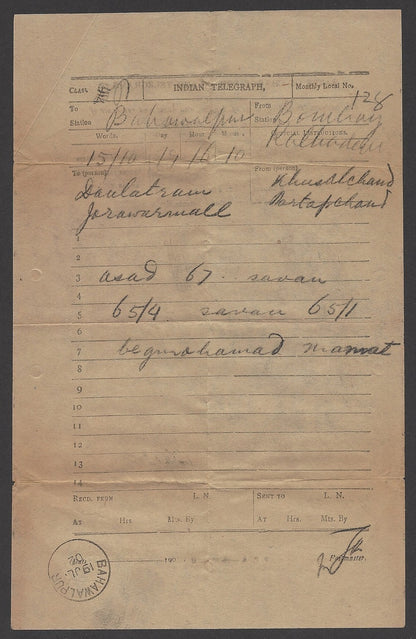 CLASS INDIAN TELEGRAPH, Monthly Local No. 128
To From
Station Bahawalpur Station Bombay
Words. Day Hour Min. OFFICIAL INSTRUCTIONS.
15/10 19 16 10 Kalbadevi
To (person) From (person)
Daulatram Khusalchand
Jorawarmall Partapchand
1
2
3 asad 67 savan
4
5 65/4 savan 65/1
6
7 begmohamad
8
9
10
11
12
13
14
RECD. FROM L. N. SENT TO L. N.
AT Hrs. Mts. By AT Hrs. Mts. By
190 Postmaster.
BAHAWALPUR
19 JL.
02